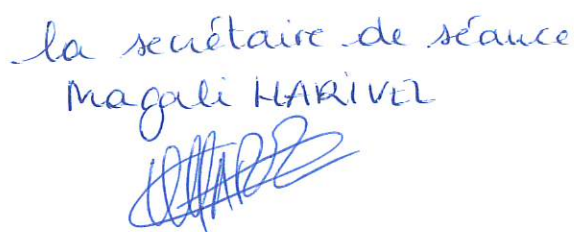 la secrétaire de séance
Magali HARIVEL